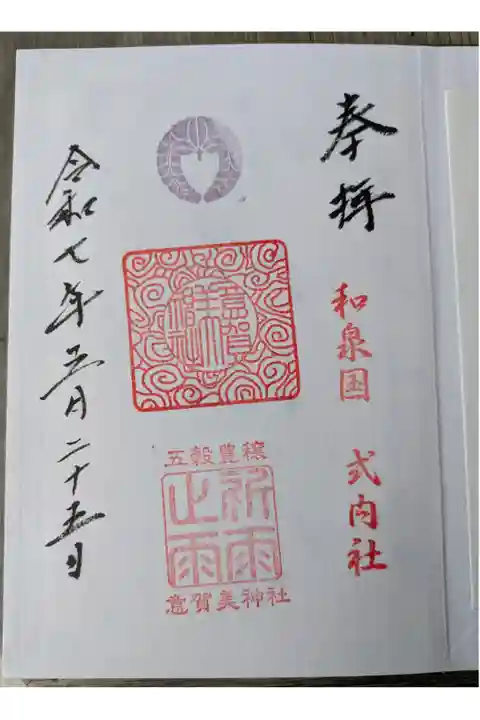 奉拝
和泉国 式内社
意賀美神社
五穀豊穣
祈雨
止雨
意賀美神社
令和七年三月二十五日